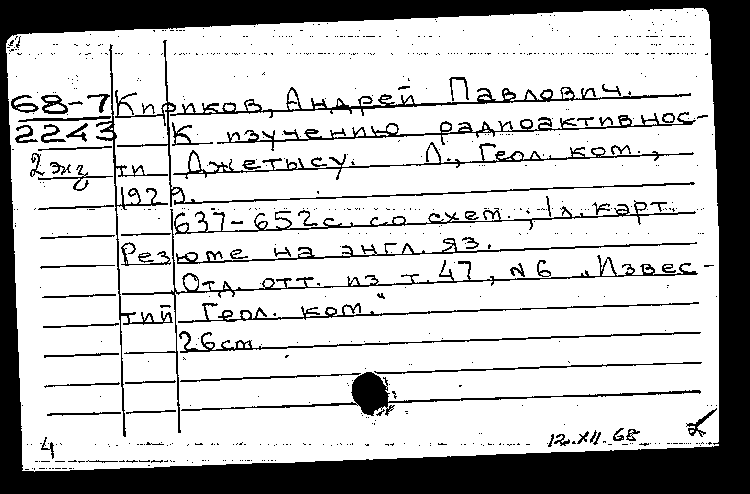 68-7 Кириков, Андрей Павлович.
2243 К изучению радиоактивнос-
2 экз ти Джетысу. Л., Геол. ком.,
1929.
637-652 с. со схем.; 1 л. карт.
Резюме на англ. яз.
Отд. отт. из т. 47, № 6 „Извес-
тий Геол. ком."
26 см.
4 12.XII.68